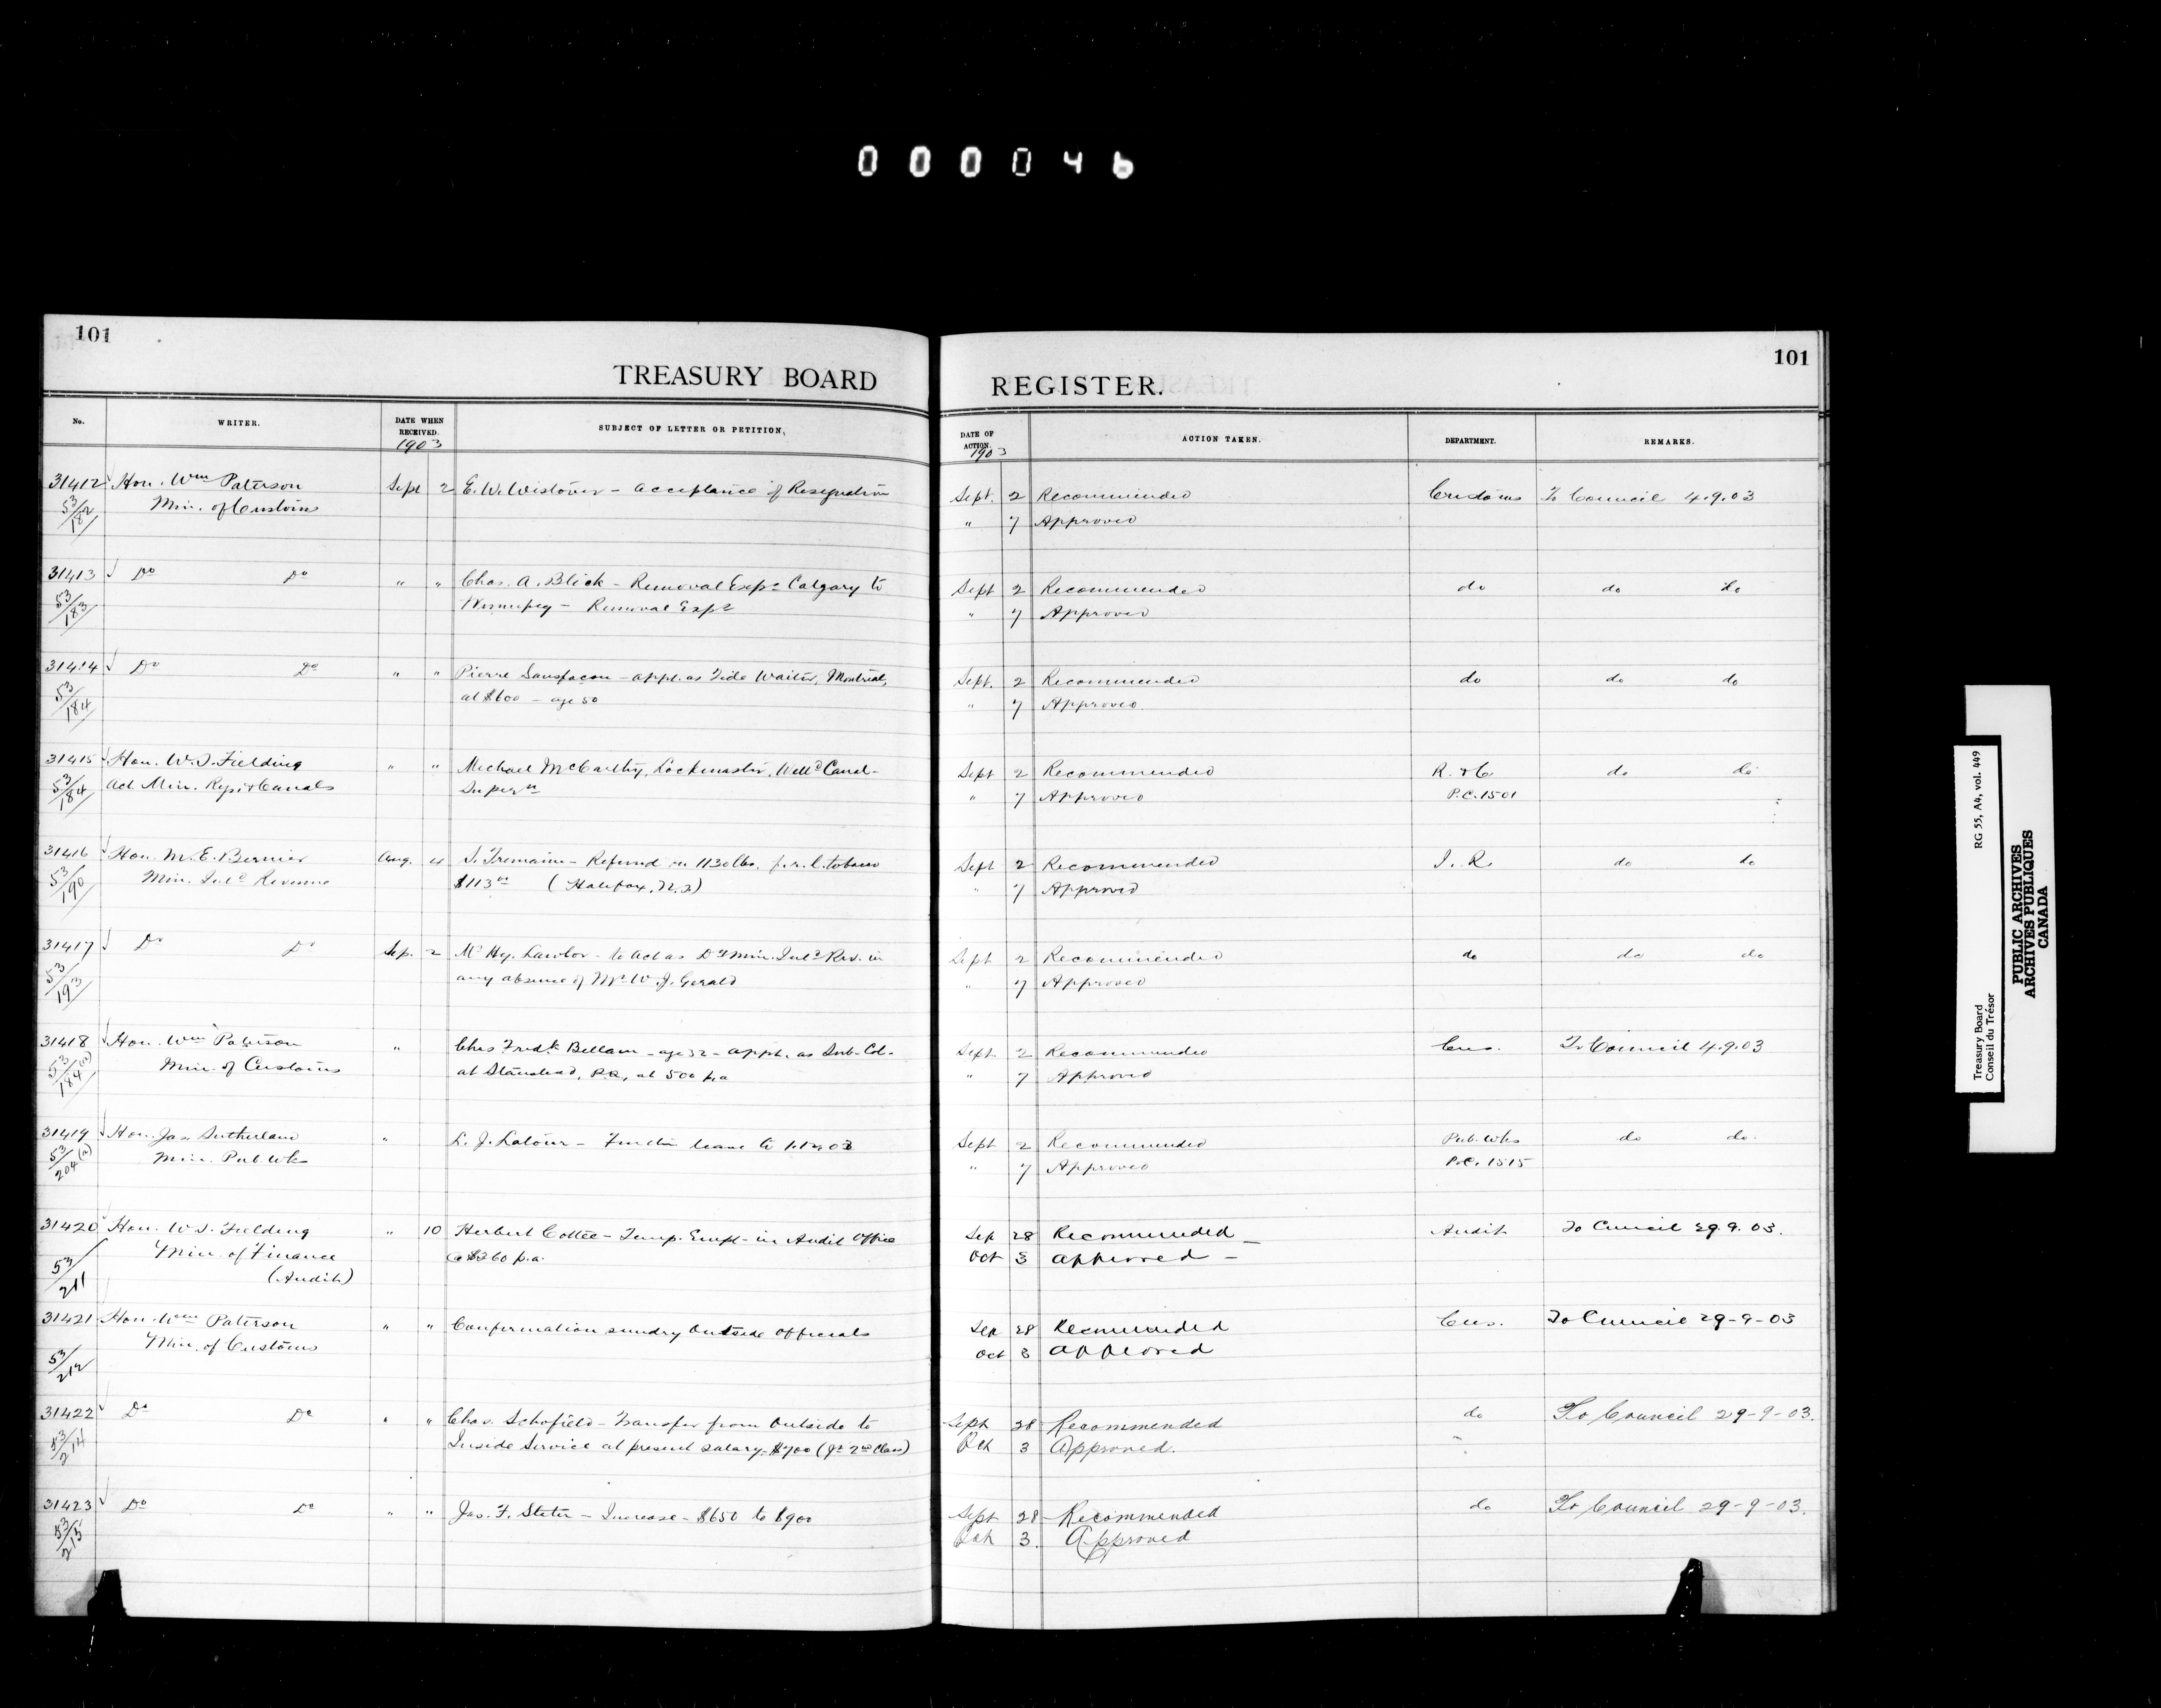 000046
101
TREASURY BOARD
REGISTER.
101
No.
WRITER.
DATE WHEN RECEIVED.
1903
SUBJECT OF LETTER OR PETITION.
DATE OF ACTION.
1903
ACTION TAKEN.
DEPARTMENT.
REMARKS.
31412 Hon. Wm Paterson Sept 2 E. W. Westover - acceptance of Resignation Sept. 2 Recommended Customs To Council 4.9.03
53/182 Min. of Customs " 7 Approved
31413 Do Do " " Chas. A. Blick - Removal Exps Calgary to Sept 2 Recommended do do do
53/183 Winnipeg - Removal Exps " 7 Approved
31414 Do Do " " Pierre Sansfacon - appt. as Tide Waiter, Montreal, Sept. 2 Recommended do do do
53/184 at $600 - age 50 " 7 Approved
31415 Hon. W. S. Fielding " " Michael McCarthy, Lockmaster, Welld Canal - Sept 2 Recommended R. & C. do do
53/184 Act Min. Rys & Canals Supern " 7 Approved P.C. 1501
31416 Hon. M. E. Bernier Aug. 4 Tremaine - Refund on 1130 lbs. f.r.l. tobacco Sept 2 Recommended I. R. do do
53/190 Min. Inld Revenue $113 00 (Halifax, N.S) " 7 Approved
31417 Do Do Sep. 2 Mr Hy. Lawlor - to act as Dy Min. Inld Rev. in Sept 2 Recommended do do do
53/193 any absence of Mr W. J. Gerald " 7 Approved
31418 Hon. Wm Paterson " Chas Fredk Bellam - age 32 - appt. as Sub-Col. Sept. 2 Recommended Cus. To Council 4.9.03
53/184(a) Min. of Customs at Stanstead, P.Q., at 500 p.a " 7 Approved
31419 Hon. Jas. Sutherland " L. J. Latour - Further leave to 1.12.03 Sept 2 Recommended Pub. Wks do do
53/204(a) Min. Pub. Wks " 7 Approved P.C. 1515
31420 Hon. W. S. Fielding " 10 Herbert Cottee - Temp. Empt. in Audit Office Sep 28 Recommended - Audit To Council 29.9.03.
53/211 Min. of Finance p.a. Oct 3 approved -
(Audit)
31421 Hon. Wm Paterson " " Confirmation sundry Outside officials Sep 28 Recommended Cus. To Council 29-9-03
53/212 Min. of Customs Oct 3 approved
31422 Do Do " " Chas. Schofield - Transfer from Outside to Sept 28 Recommended do To Council 29-9-03.
53/214 Inside Service at present salary - $700 (Jr 2nd Class) Oct 3 Approved.
31423 Do Do " " Jas. F. Slater - Increase - $650 to $900 Sept 28 Recommended do To Council 29-9-03.
53/215 Oct 3. Approved
Treasury Board
Conseil du Trésor
RG 55, A4, vol. 449
PUBLIC ARCHIVES
ARCHIVES PUBLIQUES
CANADA